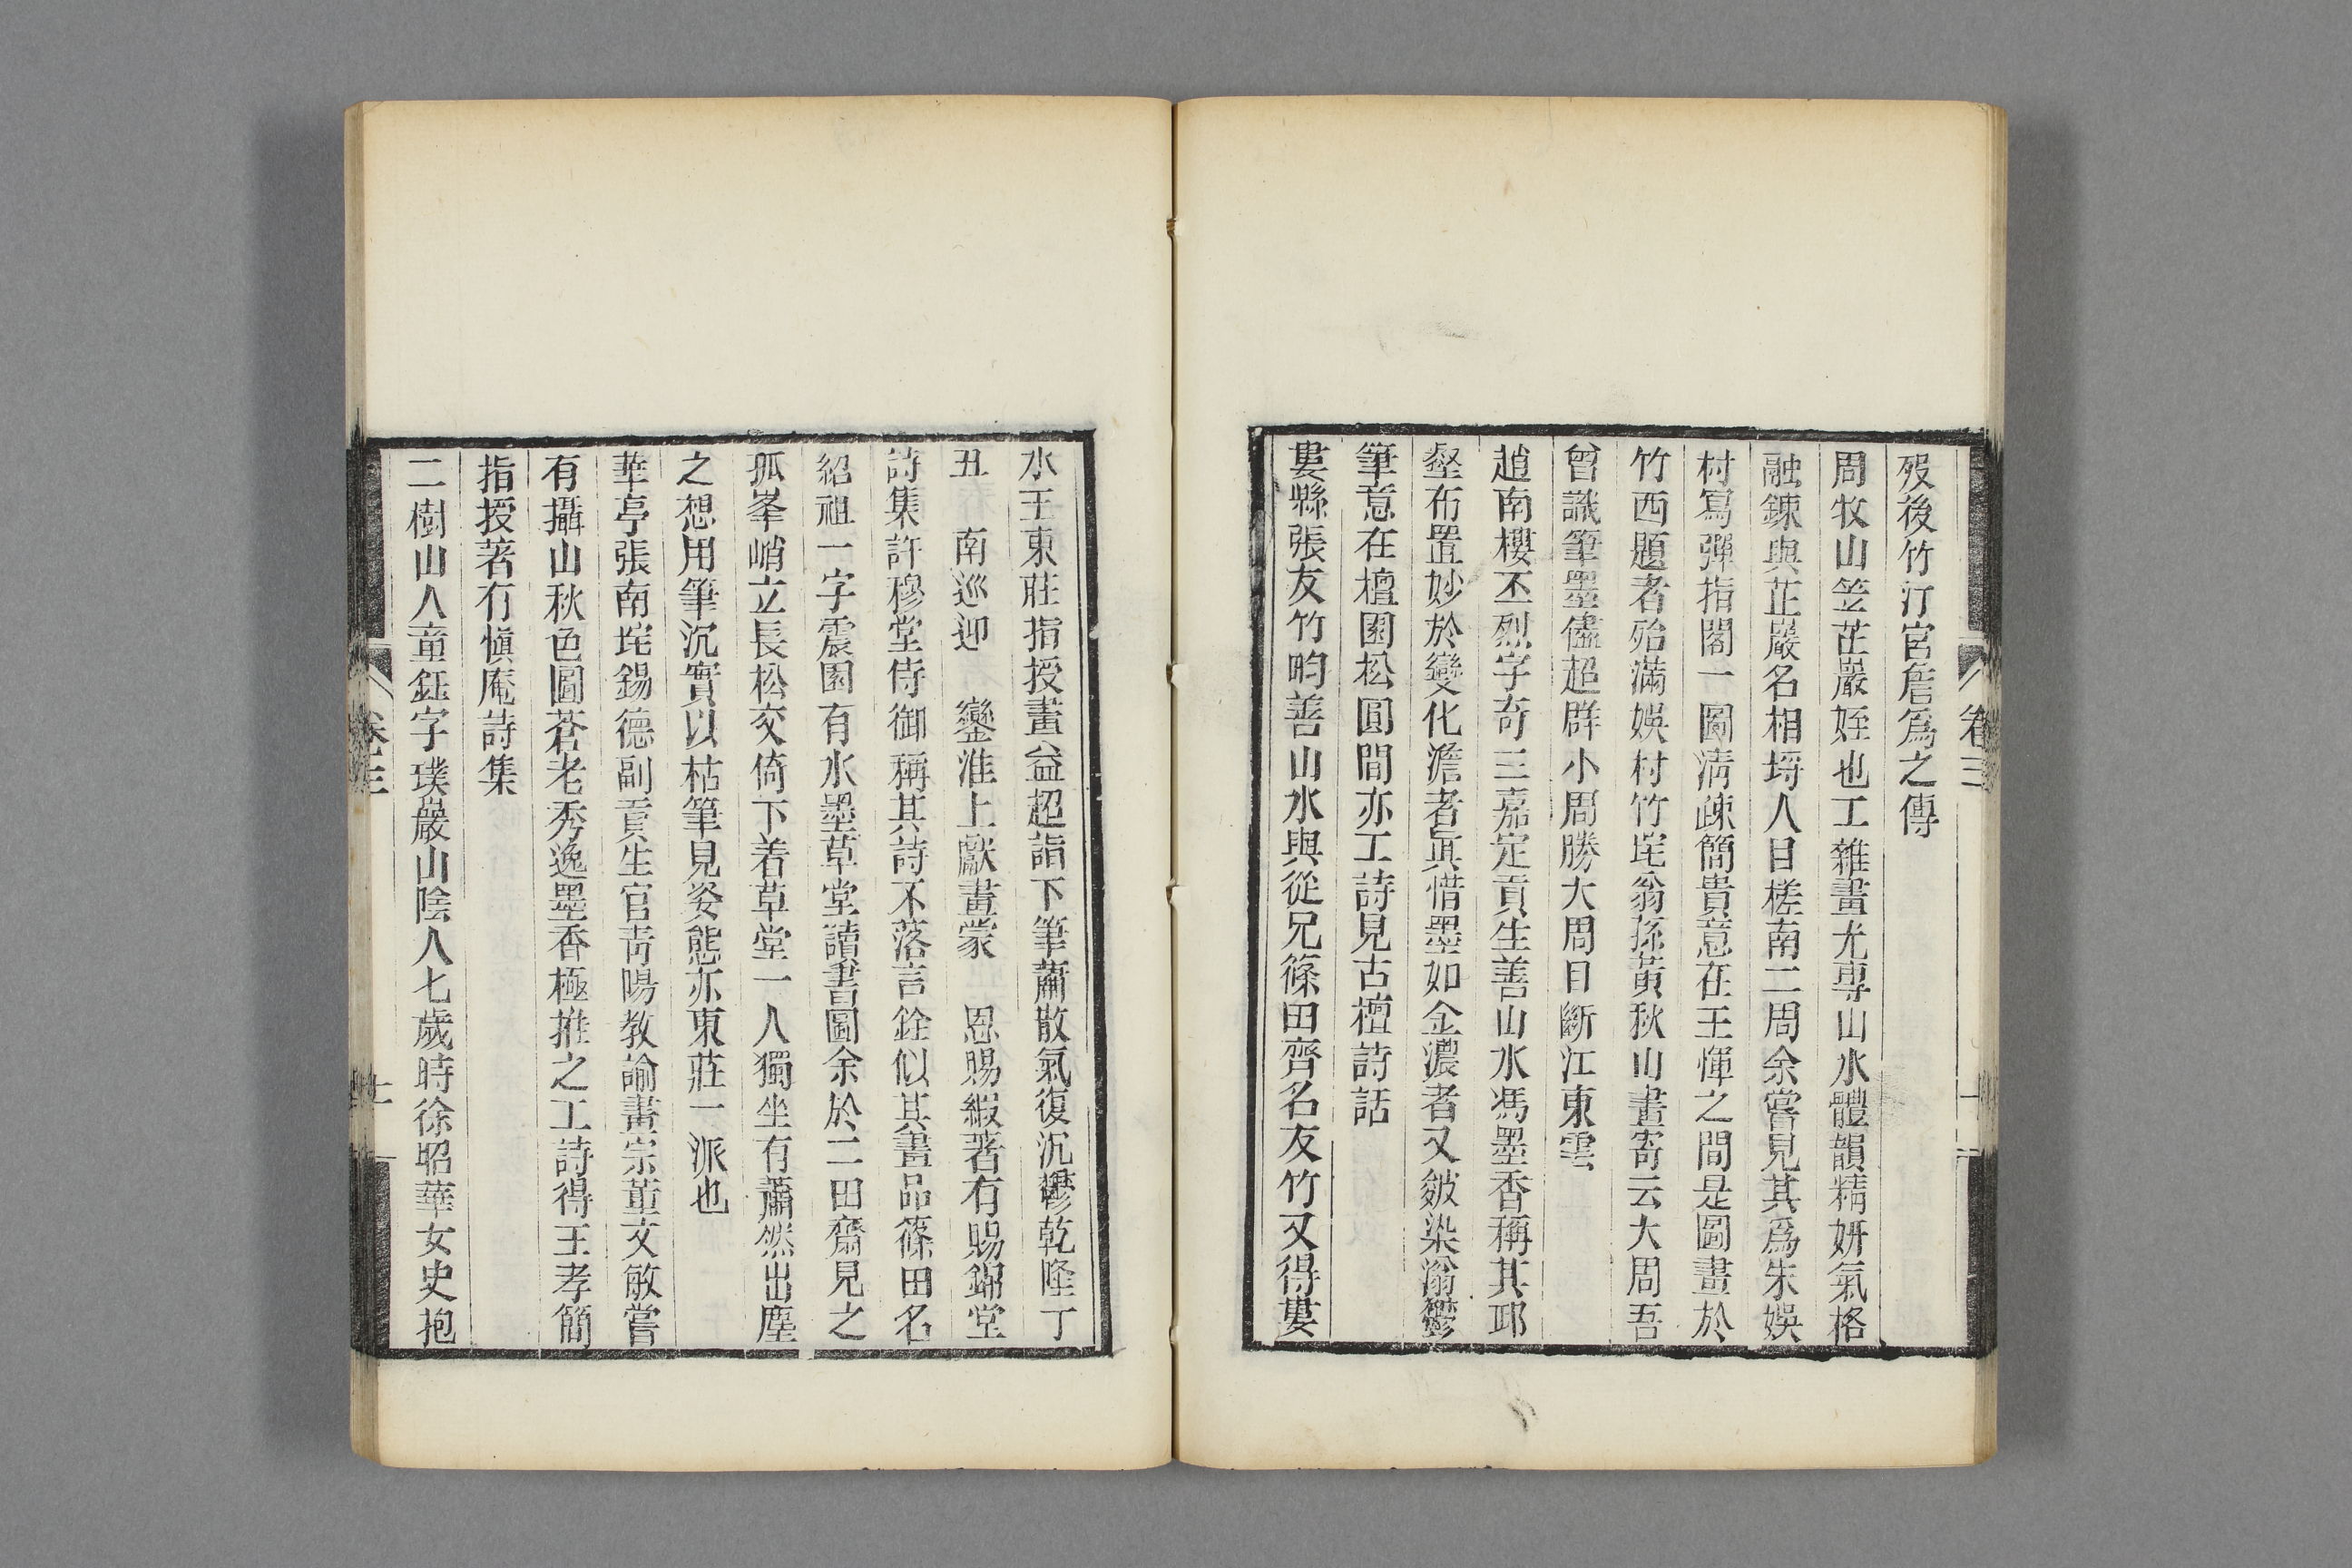 卷三
十
歿後竹汀宮詹爲之傳
周牧山笠芷巖姪也工雜畫尤專山水體韻精妍氣格
融鍊與芷巖名相埒人目槎南二周余嘗見其爲朱娛
村寫彈指閣一圖淸疎簡貴意在王惲之間是圖畫於
竹西題者殆滿娛村竹垞翁孫黃秋山畫寄云大周吾
曾識筆墨儘超群小周勝大周目斷江東雲
趙南樓丕烈字奇三嘉定貢生善山水馮墨香稱其邱
壑布置妙於變化澹者眞惜墨如金濃者又皴染滃鬱
筆意在檀園松圓間亦工詩見古檀詩話
婁縣張友竹畇善山水與從兄篠田齊名友竹又得婁
水王東莊指授畫益超詣下筆蕭散氣復沉鬱乾隆丁
丑　南巡迎　鑾淮上獻畫蒙　恩賜緞著有賜錦堂
詩集許穆堂侍御稱其詩不落言銓似其畫品篠田名
紹祖一字震園有水墨草堂讀書圖余於二田齋見之
孤峯峭立長松交倚下着草堂一人獨坐有蕭然出塵
之想用筆沉實以枯筆見姿態亦東莊一派也
華亭張南垞錫德副貢生官靑陽教諭畫宗董文敏嘗
有攝山秋色圖蒼老秀逸墨香極推之工詩得王孝簡
指授著有愼庵詩集
二樹山人童鈺字璞巖山陰人七歲時徐昭華女史抱
卷三